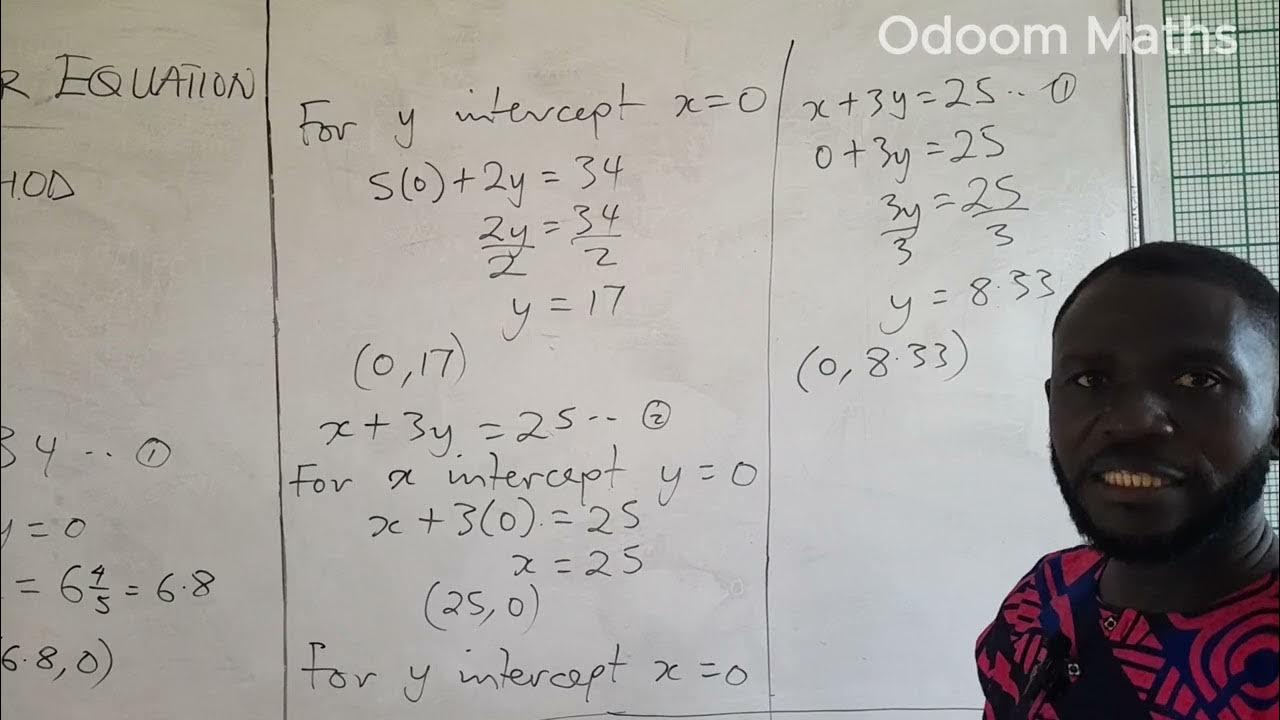 R EQUATION
HOD
34 ·· ①
y = 0
= 6 4/5 = 6·8
6·8, 0)
For y intercept x = 0
5(0) + 2y = 34
2y/2 = 34/2
y = 17
(0, 17)
x + 3y = 25 ·· ②
For x intercept y = 0
x + 3(0) = 25
x = 25
(25, 0)
For y intercept x = 0
Odoom Maths
x + 3y = 25 ·· ①
0 + 3y = 25
3y/3 = 25/3
y = 8·33
(0, 8·33)